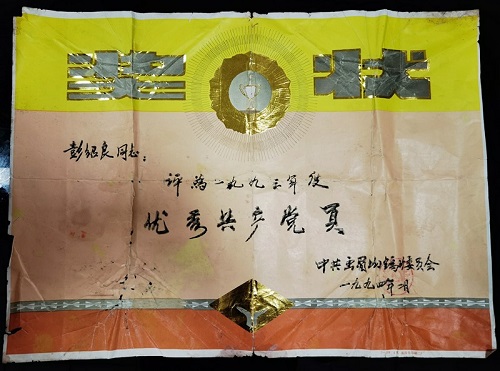 奖状
彭绍良同志:
评为一九九三年度
优秀共产党员
中共禹眉山镇委员会
一九九四年 月